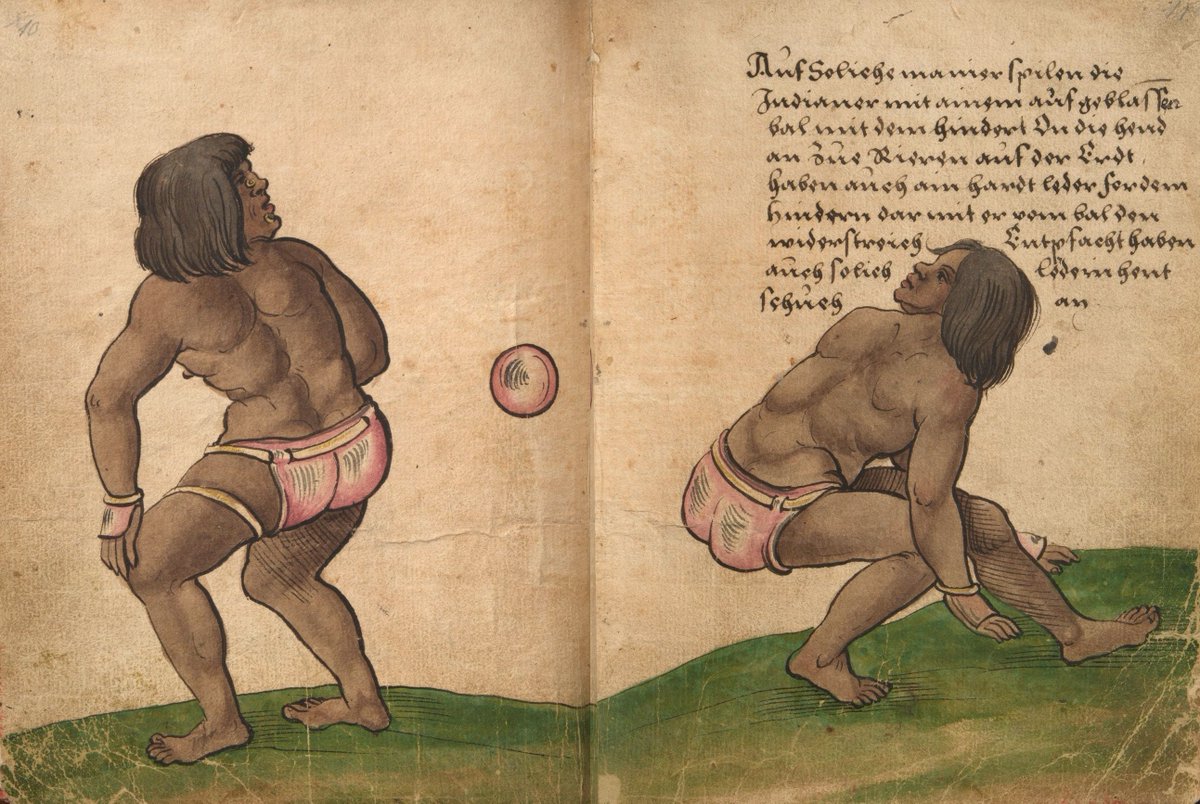 10
Auf Soliche manier spilen die
Indianer mit ainem auf geblassen
bal mit dem hindert On die hend
an Zue Rieren auf der Erdt
haben aueh ain hardt leder for dem
hindern dar mit er vom bal den
widerstreich Entpfacht haben
aueh solich ledern hent
schueh an